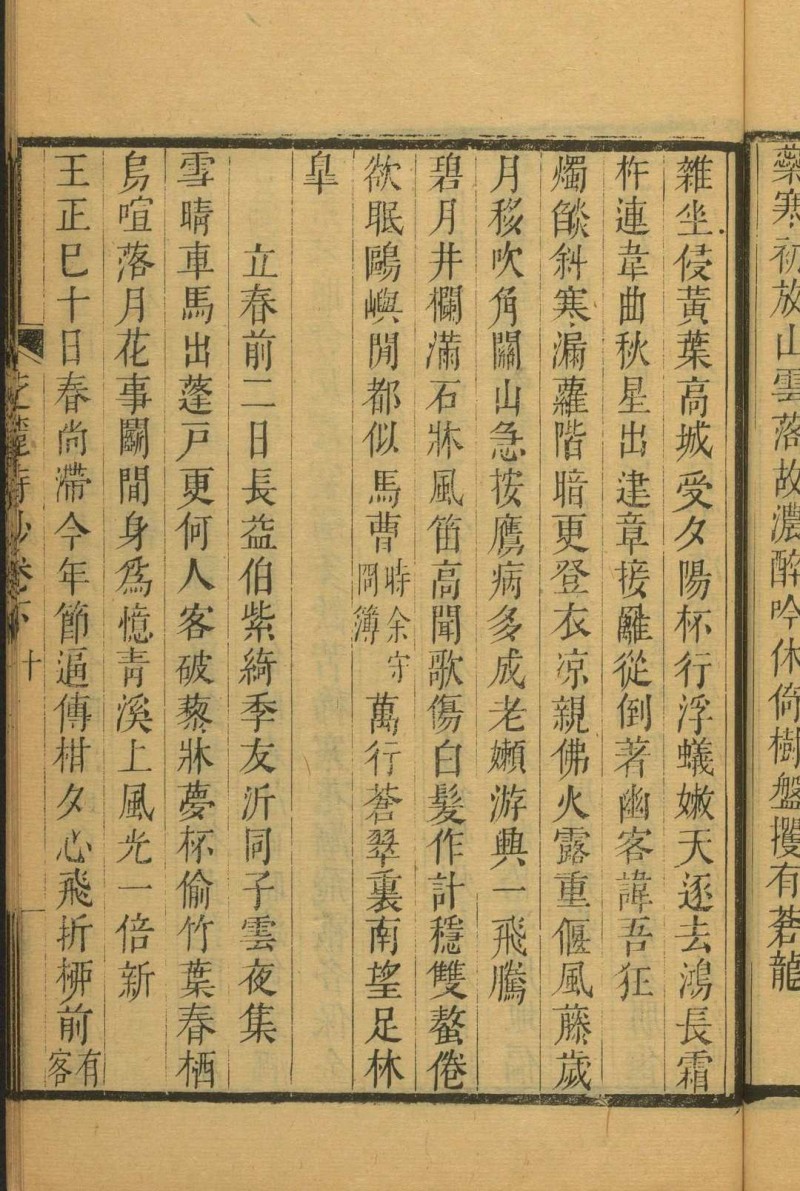 蘂寒初放山雲落故濃醉吟休倚樹盤攫有蒼龍
雜坐侵黃葉高城受夕陽杯行浮蟻嫩天逐去鴻長霜
柞連韋曲秋星出建章接䍦從倒著幽客諱吾狂
燭𦦨斜寒漏蘿階暗更登衣凉親佛火露重偃風藤歲
月移吹角關山急按鷹病多成老嬾游興一飛騰
碧月井欄滿石牀風笛高聞歌傷白髮作計穩雙螯倦
欲眠鷗嶼閒都似馬曹時余守岡簿萬行蒼翠裏南望足林
皐
立春前二日長益伯紫綺季友沂同子雲夜集
雪晴車馬出蓬戸更何人客破藜牀夢杯偷竹葉春栖
烏喧落月花事鬭閒身爲憶靑溪上風光一倍新
王正巳十日春尚滯今年節逼傳柑夕心飛折桺前有客
詩鈔卷下 十